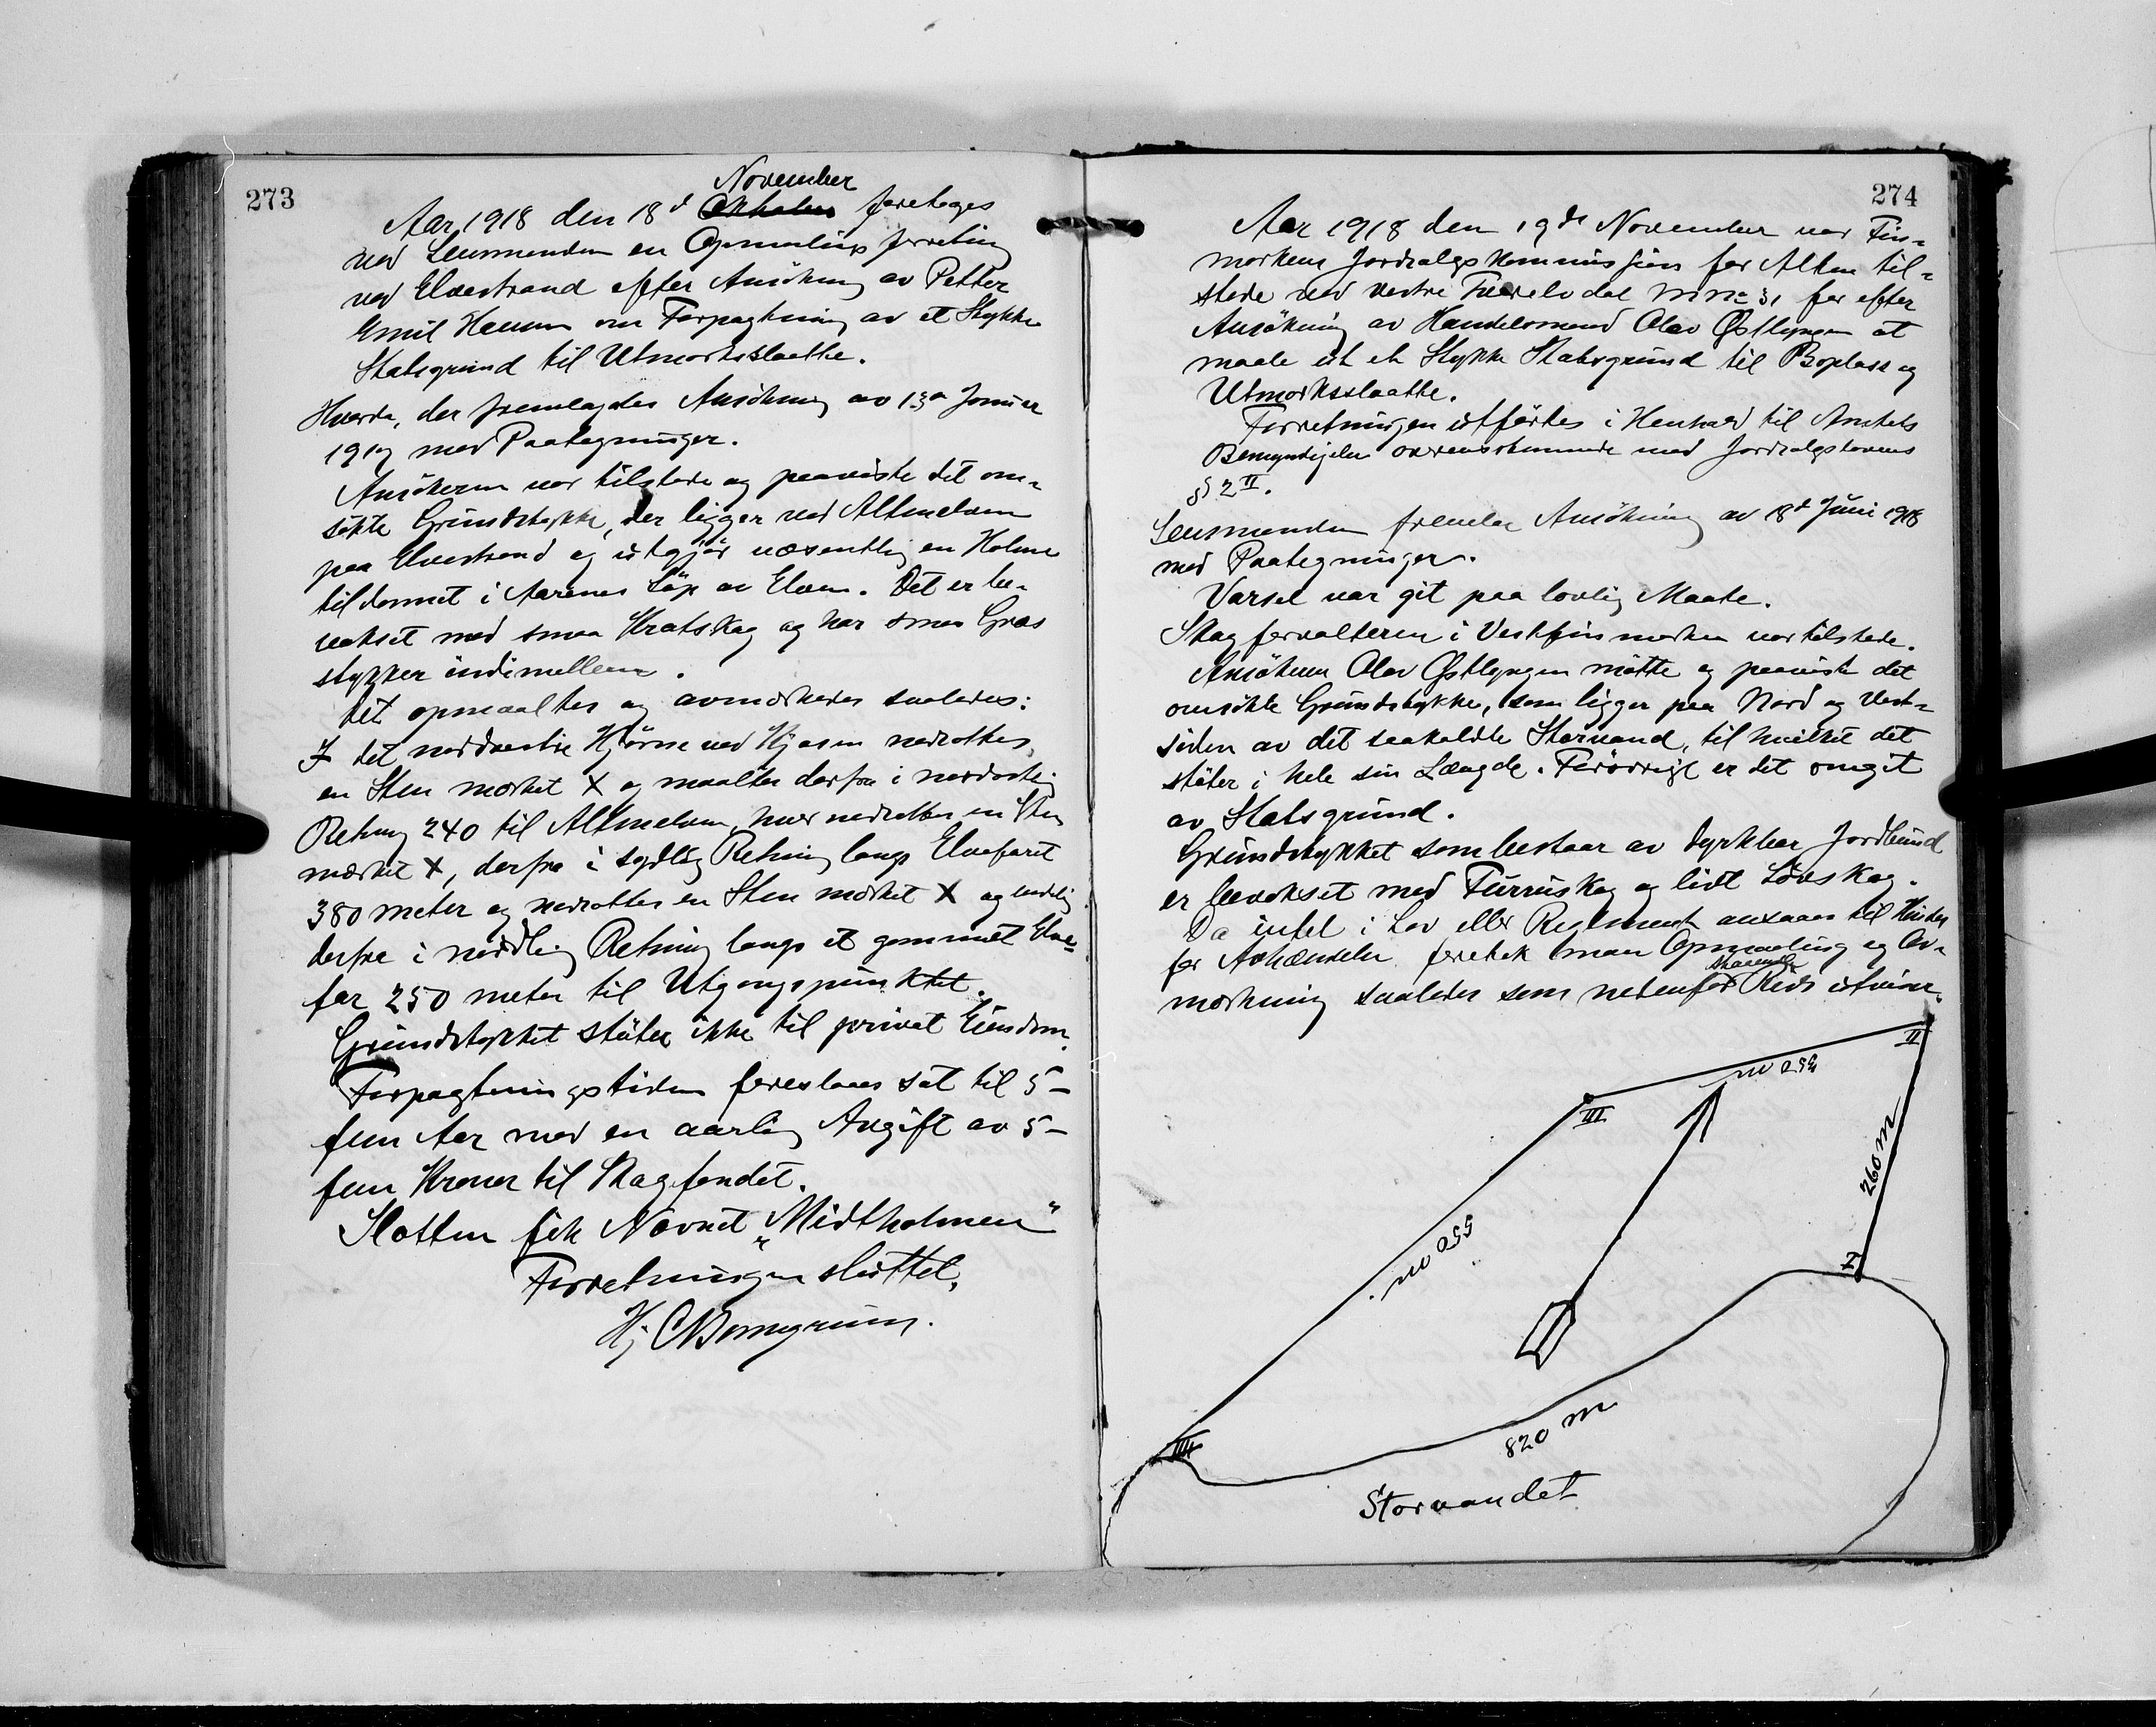 273
November
Aar 1918 den 18d Oktober foretoges
ved Lensmanden en Opmalings forretning
ved Elvestrand efter Ansökning av Petter
Emil Hansen om Forpagtning av et Stykke
Statsgrund til Utmarksslaatte.
Hvorda, der fremlagdes Ansökning av 13de Januar
1917 med Paategninger.
Ansökeren var tilstede og paaviste det om-
sökte Grundstykke, der ligger ved Altenelven
paa Elvestrand og utgjör væsentlig en Holme
tildannet i Aarenes Löp av Elven. Det er be-
vokset med smaa Kratskog og har smaa Græs
stykker indimellem.
Det opmaaltes og avmerkedes saaledes:
I det nordvestre Hjörne ved Hjosen nedsattes
en Sten merket X og maaltes derfra i nordostlig
Retning 240 til Altenelven, hvor nedsattes en Sten
merket X, derfra i sydlig Retning langs Elvefaret
380 meter og nedsattes en Sten merket X og endelig
derfra i nordlig Retning langs et gammelt Elve-
far 250 meter til Utgangspunktet.
Grundstykket stöter ikke til privat Eiendom.
Forpagtningstiden foreslaaes sat til 5 -
fem Aar med en aarlig Avgift av 5 -
fem Kroner til Skogfondet.
Slotten fik Navnet "Midtholmen"
Forretningen sluttet.
Hj.
274
Aar 1918 den 19de November var Fin-
markens Jordsalgskommission for Alten til-
stede ved vestre Tverelvdal m.n. 31 for efter
Ansökning av Handelsmand Olav Østlyngen at
maale ut et Stykke Statsgrund til Boplass og
Utmarksslaatte.
Forretningen utförtes i Henhold til Amtets
Bemyndigelse overensstemmende med Jordsalgslovens
§ 2 II.
Lensmanden fremla Ansökning av 18d Juni 1918
med Paategninger.
Varsel var git paa lovlig Maate.
Skogforvalteren i Vestfinmarken var tilstede.
Ansökeren Olav Østlyngen mötte og paaviste det
omsökte Grundstykke, som ligger paa Nord og Vest-
siden av det saakaldte Storvand, til hvilket det
stöter i hele sin Længde. Forövrigt er det omgit
av Statsgrund.
Grundstykket som bestaar av dyrkbar Jordbund
er bevokset med Furuskog og lidt Lövskog.
Da intet i Lov eller Reglement ansaaes til Hinder
for Avhændelse foretok man Opmaaling og Av-
merkning saaledes som nedenfor staaende Rids utviser.
II
250 m
III
260 m
550 m
I
IIII
820 m
Storvandet